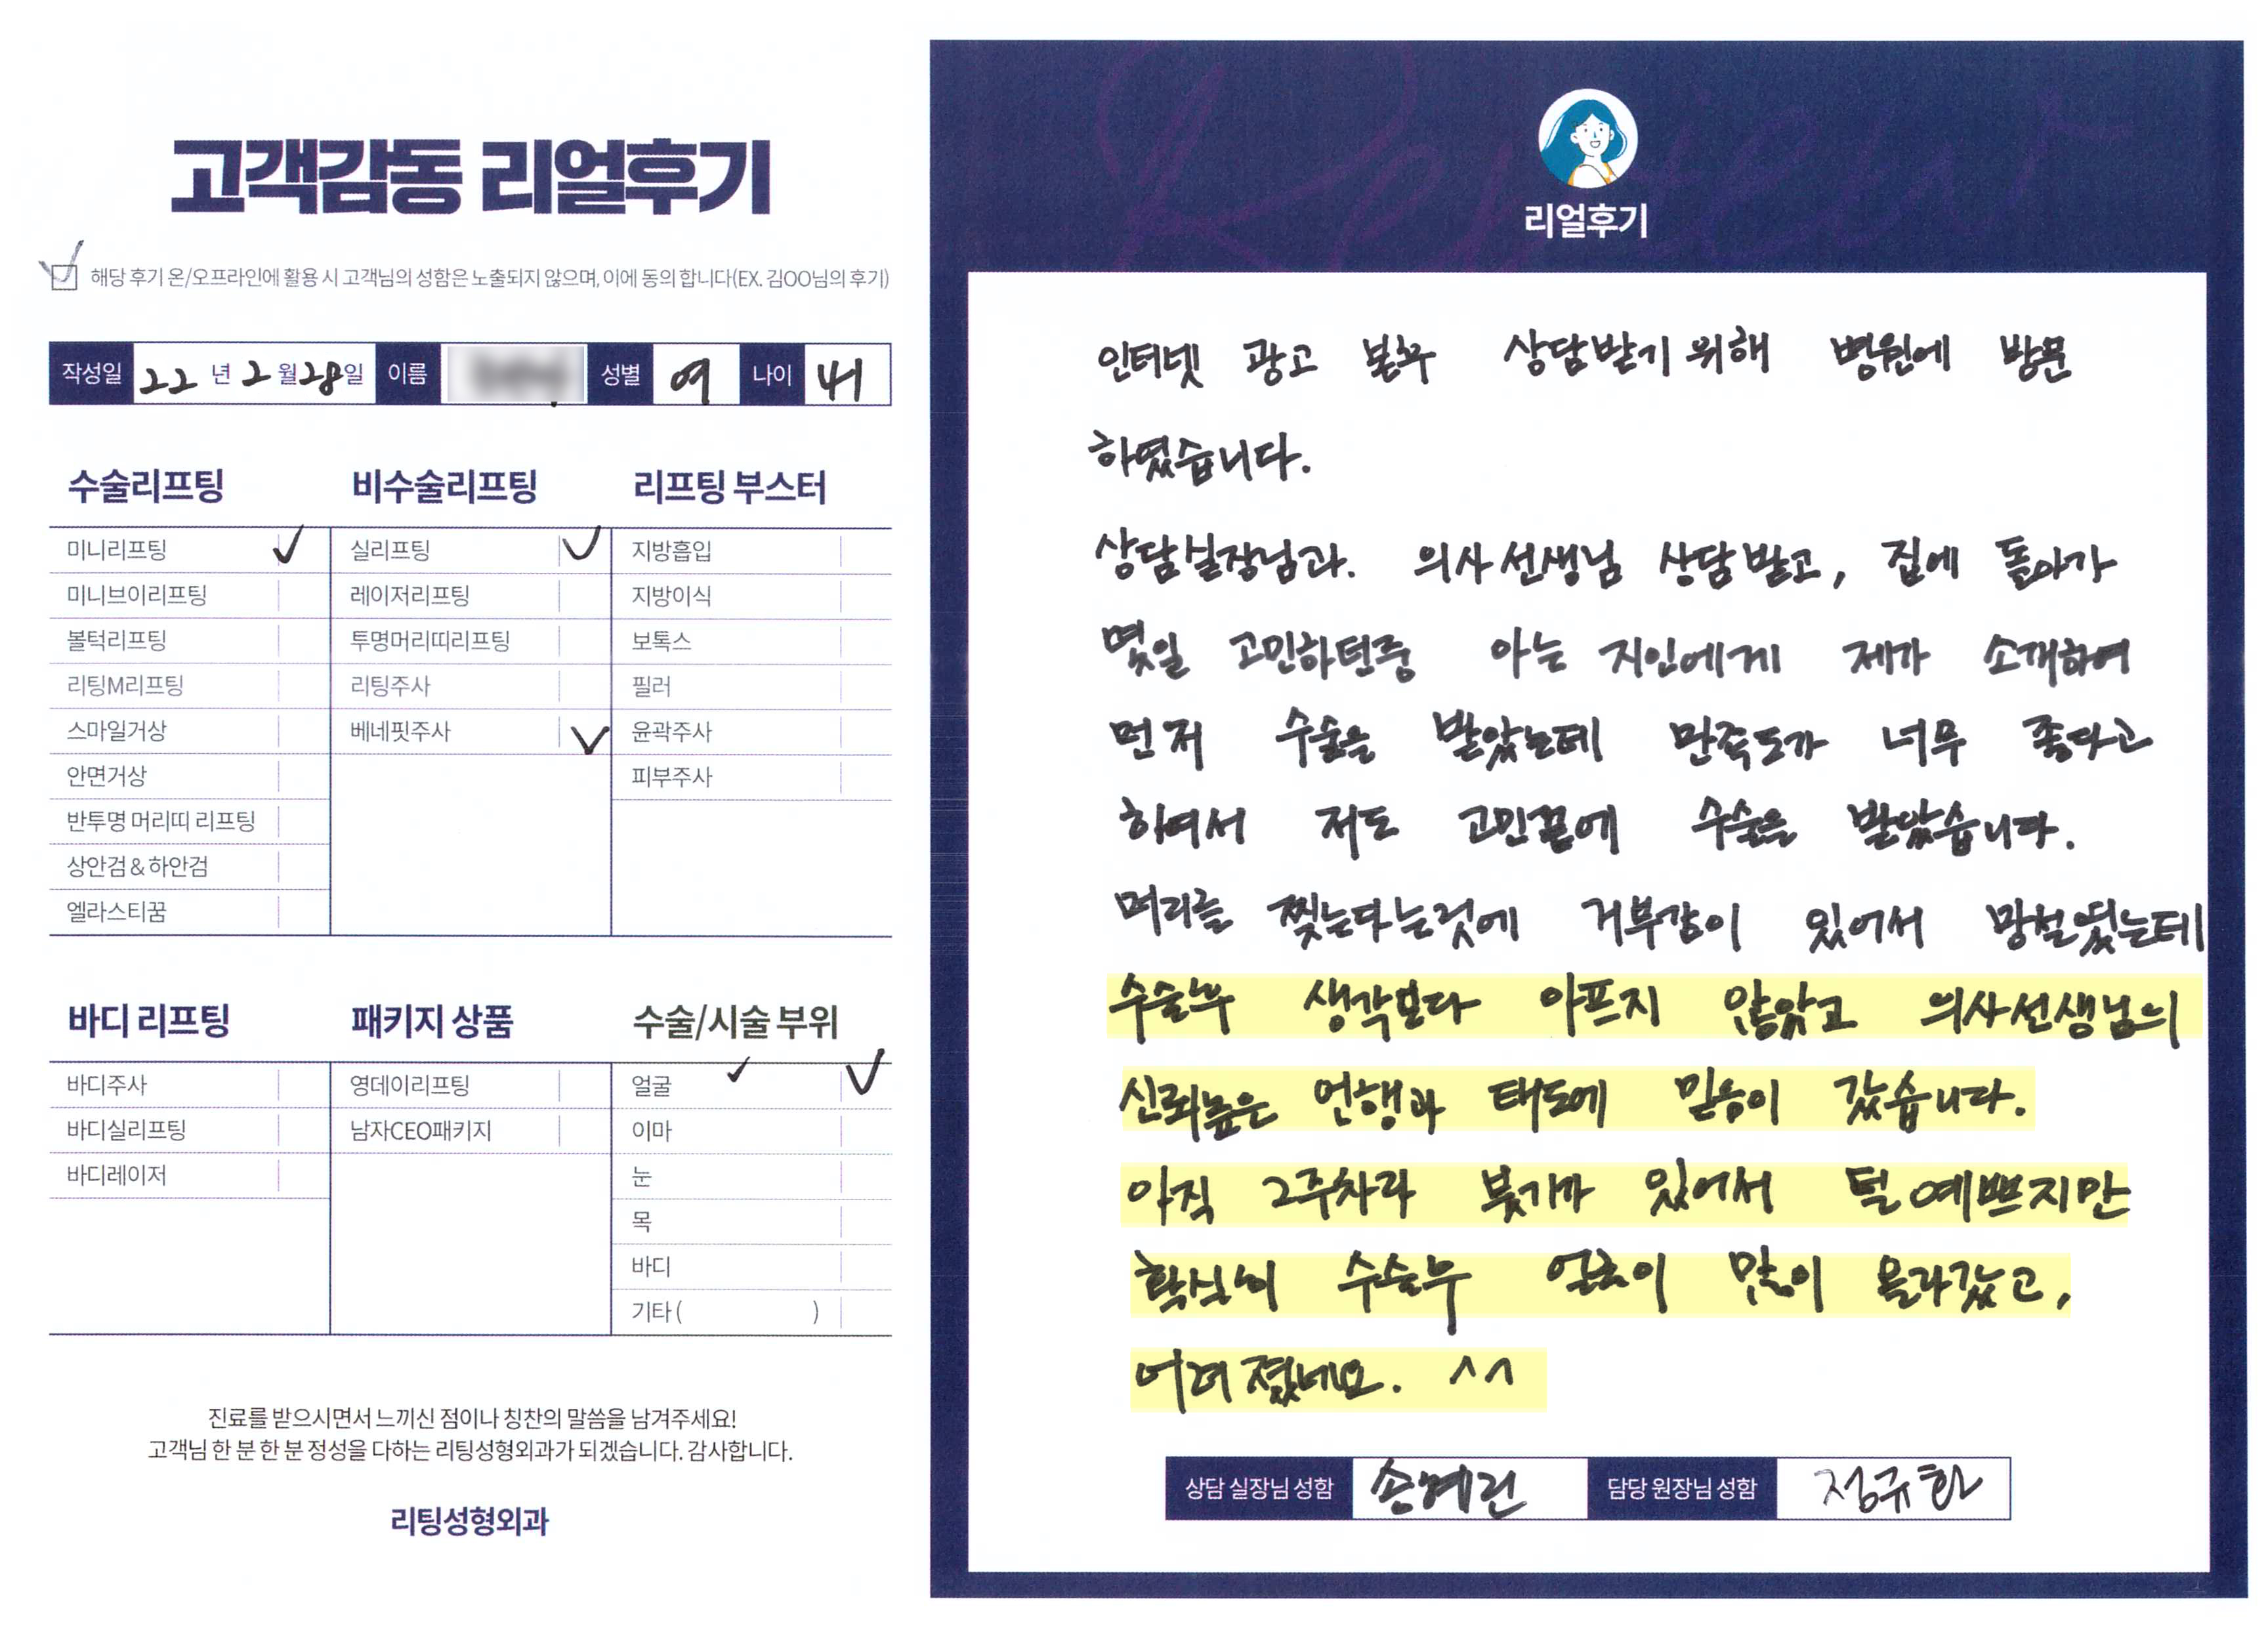 고객감동 리얼후기
해당 후기 온/오프라인에 활용 시 고객님의 성함은 노출되지 않으며, 이에 동의 합니다(EX. 김OO님의 후기)
작성일 22 년 2 월 28 일 이름 성별 여 나이 41
수술리프팅
미니리프팅
미니브이리프팅
볼턱리프팅
리팅M리프팅
스마일거상
안면거상
반투명 머리띠 리프팅
상안검 & 하안검
엘라스티꿈
비수술리프팅
실리프팅
레이저리프팅
투명머리띠리프팅
리팅주사
베네핏주사
리프팅 부스터
지방흡입
지방이식
보톡스
필러
윤곽주사
피부주사
바디 리프팅
바디주사
바디실리프팅
바디레이저
패키지 상품
영데이리프팅
남자CEO패키지
수술/시술 부위
얼굴
이마
눈
목
바디
기타 ( )
진료를 받으시면서 느끼신 점이나 칭찬의 말씀을 남겨주세요!
고객님 한 분 한 분 정성을 다하는 리팅성형외과가 되겠습니다. 감사합니다.
리팅성형외과
리얼후기
인터넷 광고 본후 상담받기 위해 병원에 방문
하였습니다.
상담실장님과. 의사선생님 상담받고, 집에 돌아가
몇일 고민하던중 아는 지인에게 제가 소개하여
먼저 수술을 받았는데 만족도가 너무 좋다고
하여서 저도 고민끝에 수술을 받았습니다.
머리를 찢는다는것에 거부감이 있어서 망설였는데
수술후 생각보다 아프지 않았고 의사선생님의
신뢰높은 언행과 태도에 믿음이 갔습니다.
아직 2주차라 붓기가 있어서 덜 예쁘지만
확실히 수술후 얼굴이 많이 올라갔고,
어려졌네요. ^^
상담 실장님 성함 손예린 담당 원장님 성함